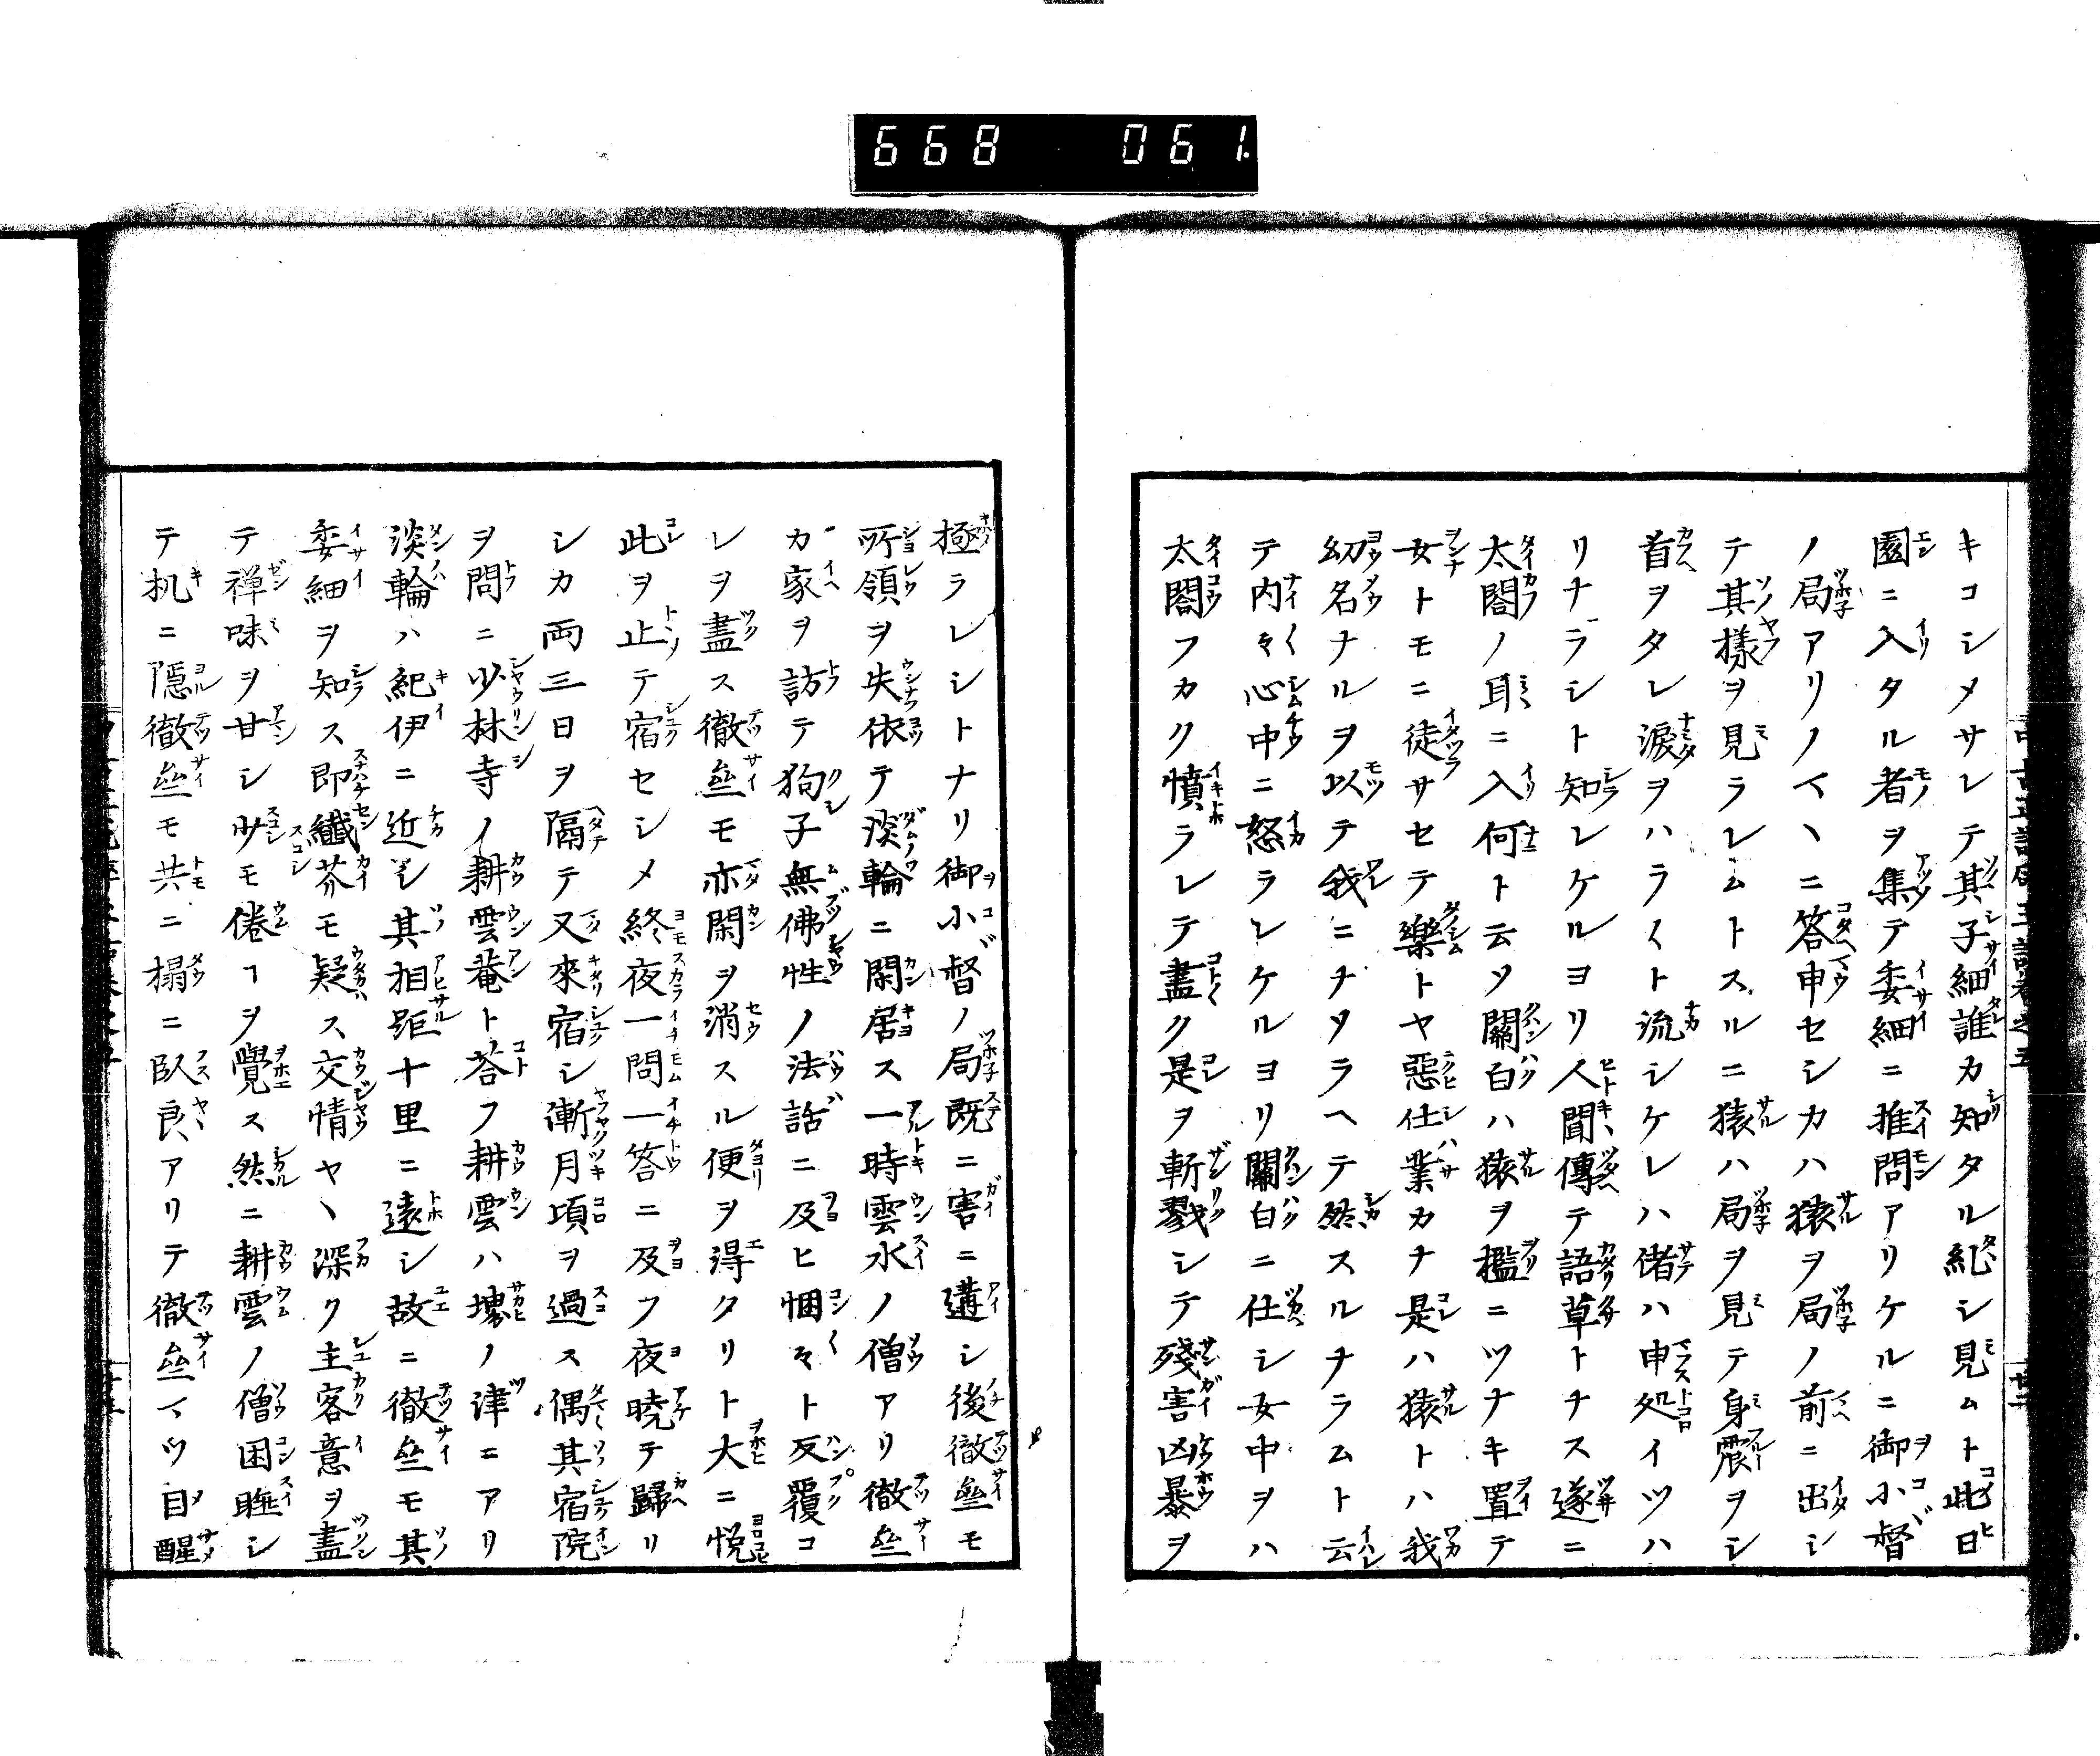 668 061
キコシメサレテ其子細誰カ知タル糺シ見ムト此日
園ニ入タル者ヲ集テ委細ニ推問アリケルニ御小督
ノ局アリノマヽニ答申セシカハ猿ヲ局ノ前ニ出シ
テ其樣ヲ見ラレムトスルニ猿ハ局ヲ見テ身震ヲシ
首ヲタレ淚ヲハラ〱ト流シケレハ偖ハ申処イツハ
リナラシト知レケルヨリ人聞傳テ語草トナス遂ニ
太閤ノ耳ニ入何ト云ソ關白ハ猿ヲ檻ニツナキ置テ
女トモニ徒サセテ樂トヤ惡仕業カナ是ハ猿トハ我
幼名ナルヲ以テ我ニナソラヘテ然スルナラムト云
テ内々心中ニ怒ラレケルヨリ關白ニ仕シ女中ヲハ
太閤フカク憤ラレテ盡ク是ヲ斬戮シテ殘害凶暴ヲ
極ラレシトナリ御小督ノ局既ニ害ニ遘シ後徹㘴モ
所領ヲ失依テ淡輪ニ閑居ス一時雲水ノ僧アリ徹㘴
カ家ヲ訪テ狗子無佛性ノ法話ニ及ヒ悃々ト反覆コ
レヲ盡ス徹㘴モ亦閑ヲ消スル便ヲ得タリト大ニ悅
此ヲ止テ宿セシメ終夜一問一答ニ及フ夜曉テ歸リ
シカ両三日ヲ隔テ又來宿シ漸月頃ヲ過ス偶其宿院
ヲ問ニ少林寺ノ耕雲菴ト答フ耕雲ハ堺ノ津ニアリ
淡輪ハ紀伊ニ近シ其相距十里ニ遠シ故ニ徹㘴モ其
委細ヲ知ス即纎芥モ疑ス交情ヤヽ深ク主客意ヲ盡
テ禅味ヲ甘シ少モ倦ヿヲ覺ス然ニ耕雲ノ僧困睡シ
テ机ニ隱徹㘴モ共ニ榻ニ臥良アリテ徹㘴マツ目醒